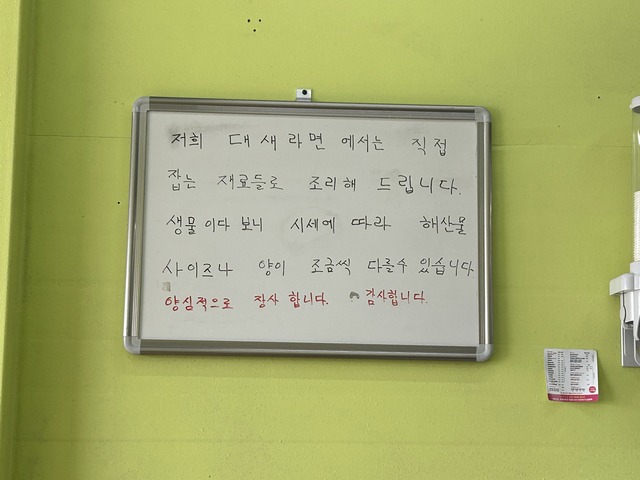 저희 대새라면 에서는 직접
잡는 재료들로 조리해 드립니다.
생물이다 보니 시세에 따라 해산물
사이즈나 양이 조금씩 다를수 있습니다
양심적으로 장사 합니다. 감사합니다.